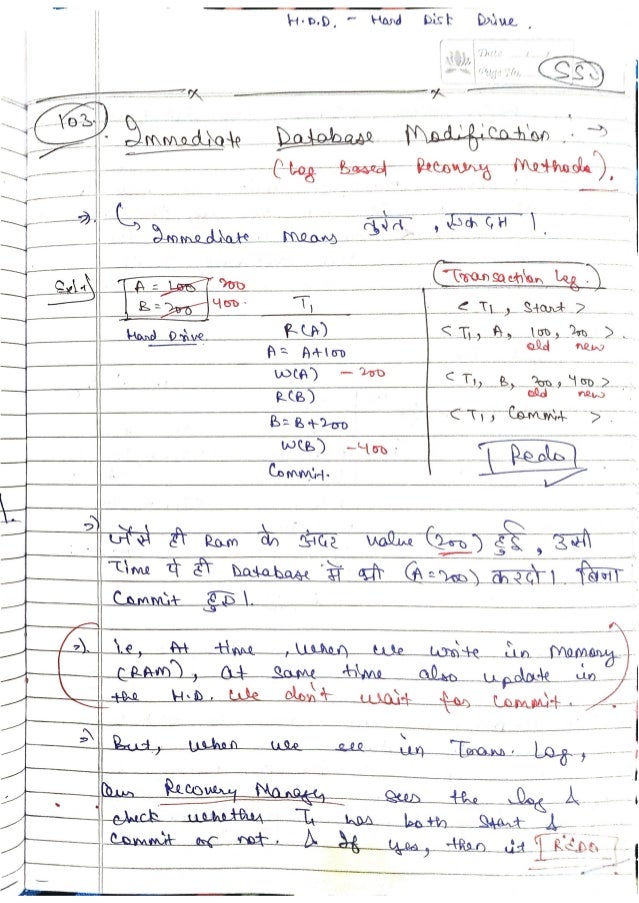 H.D.D. - Hard Disk Drive.
Date
Page No.
SS
103.
Immediate Database Modification :→
(Log Based Recovery Methods).
Immediate means तुरंत , एकदम ।
Ex:1)
A = 100 200
B = 200 400.
Hard Drive
T1
R(A)
A = A+100
W(A) - 200
R(B)
B = B+200
W(B) - 400.
Commit.
Transaction Log :
< T1, Start >
< T1, A, 100, 200 >.
old new
< T1, B, 200, 400 >
old new
< T1, Commit >.
Redo
जैसे ही Ram के अंदर value (200) हुई , उसी
Time पे ही Database में भी (A=200) करदो । बिना
Commit हुए ।
i.e, At time , when we write in Memory
(RAM), at same time also update in
the H.D. we don't wait for commit.
But, when we see in Trans. Log,
Our Recovery Manager sees the log &
check whether T1 has both Start &
Commit or not. & If yes, then it REDO